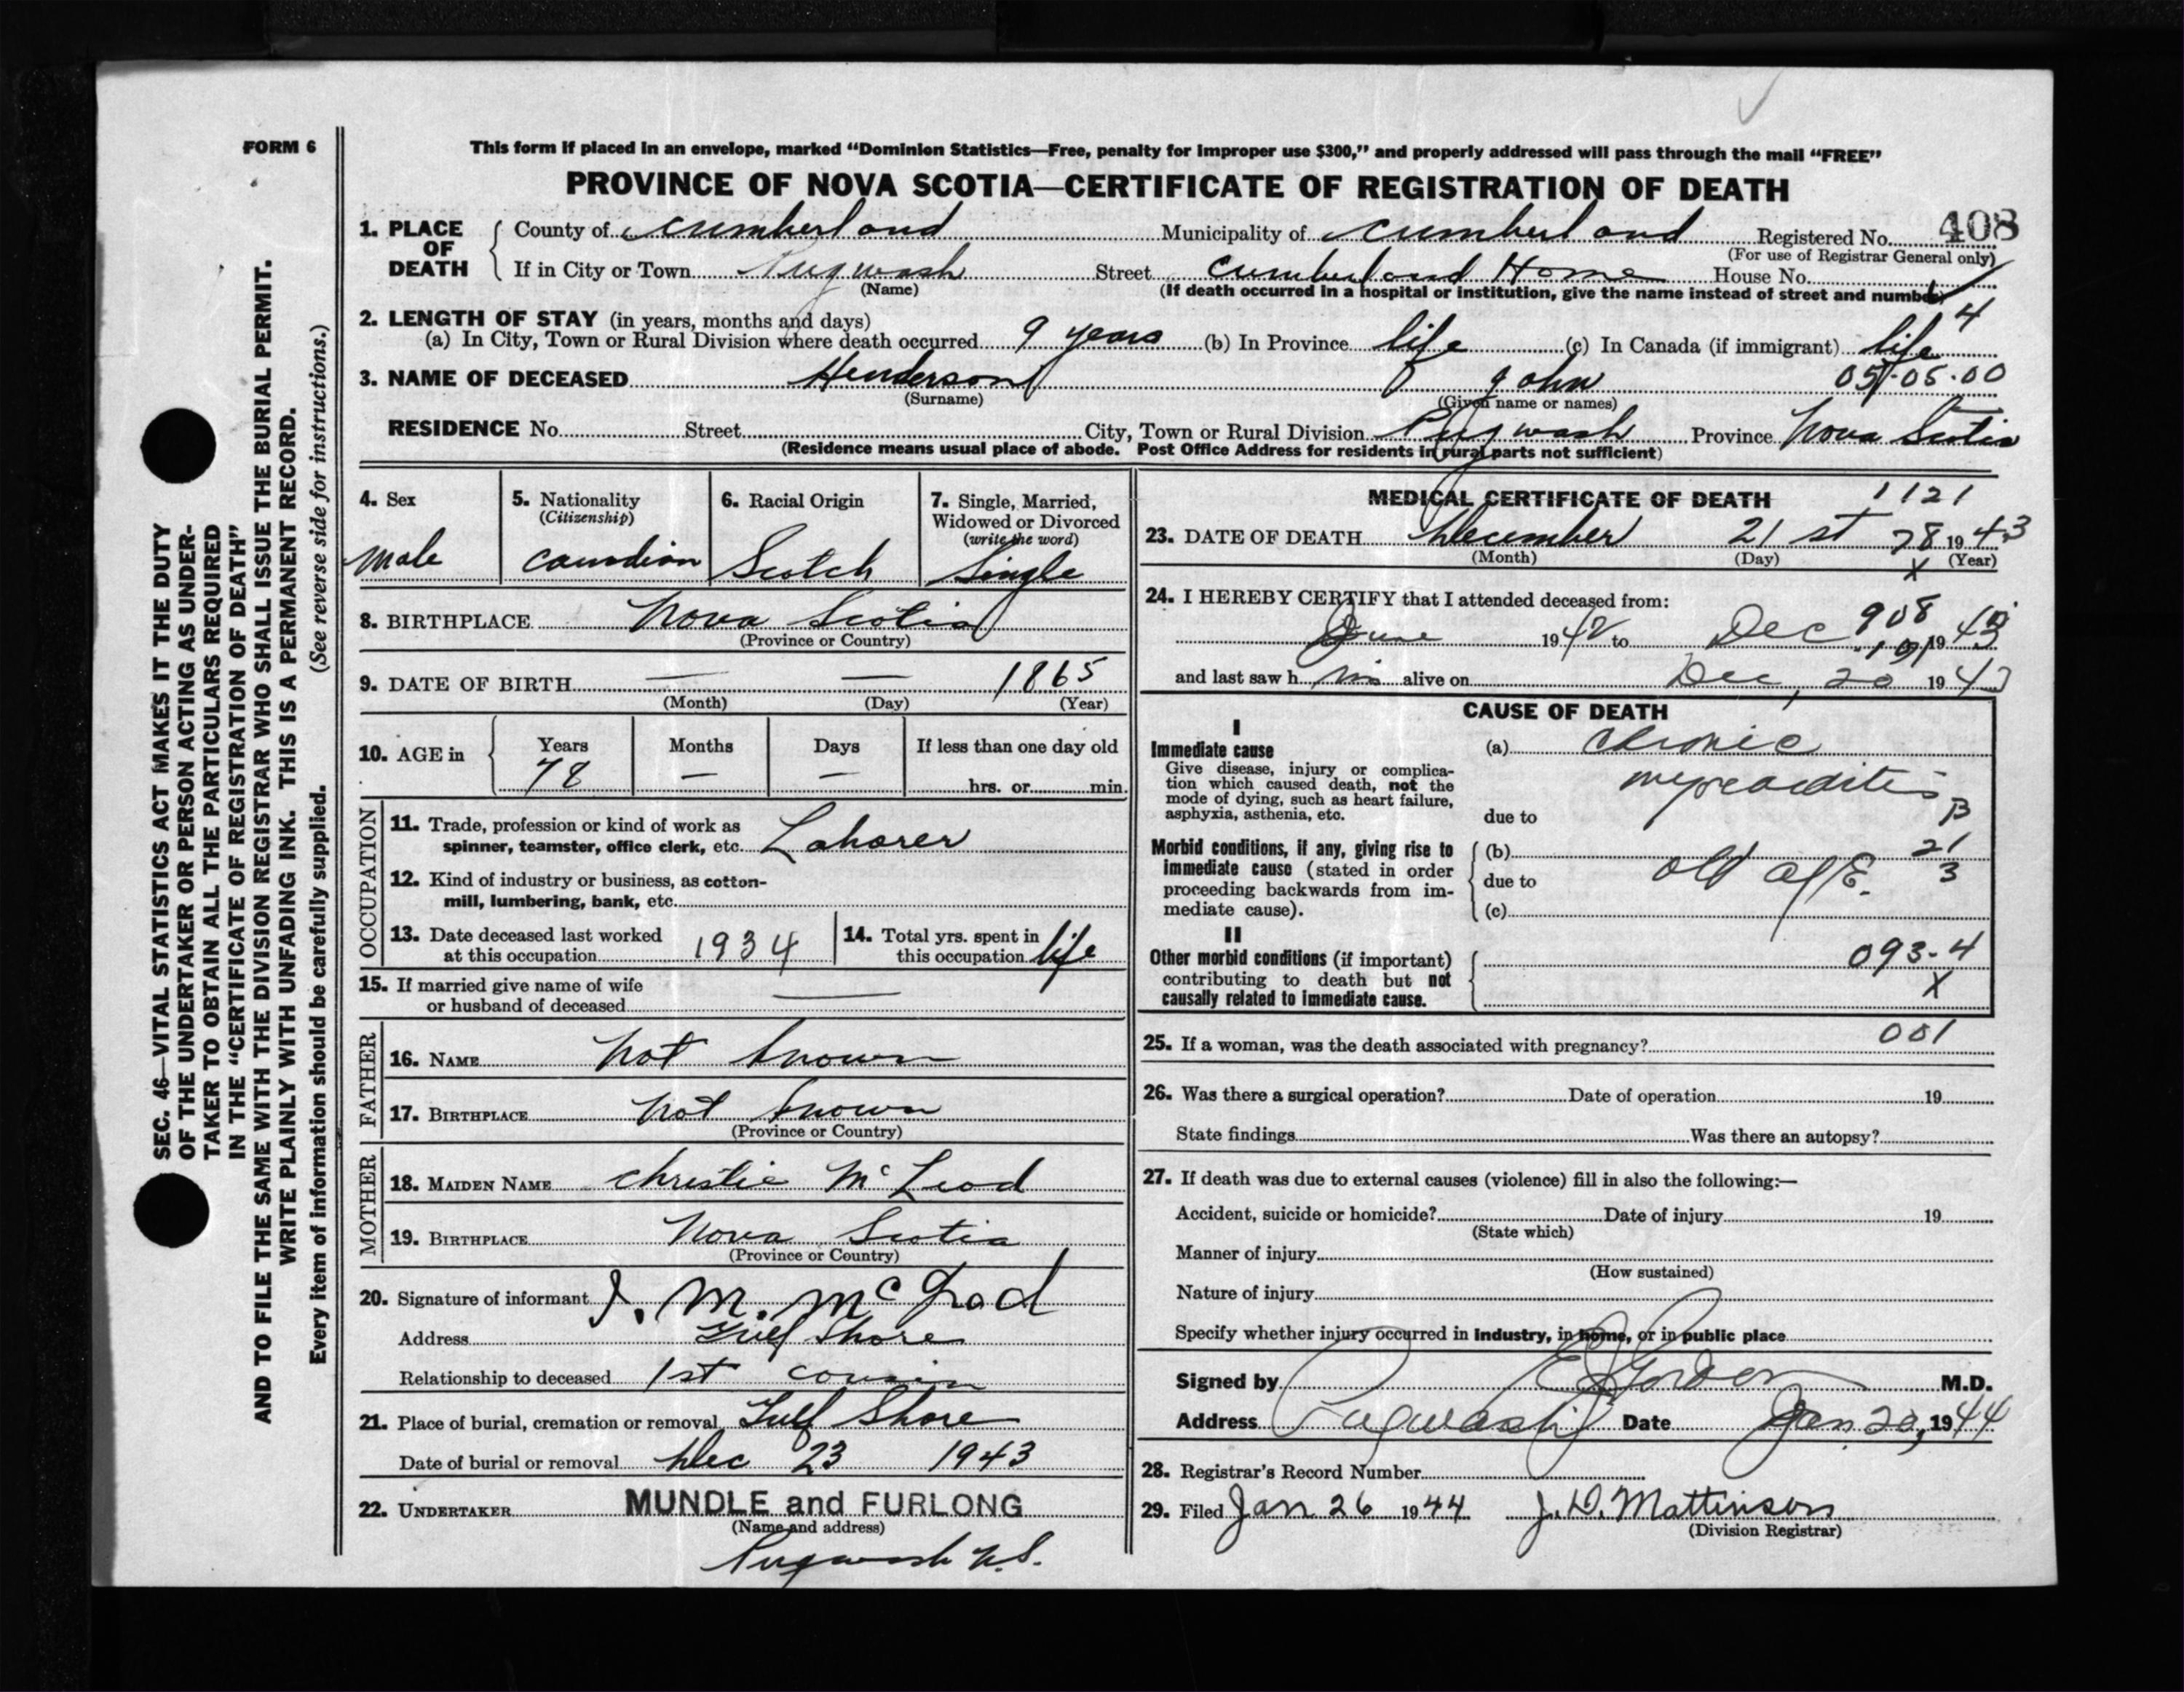 FORM 6
This form if placed in an envelope, marked “Dominion Statistics—Free, penalty for improper use $300,” and properly addressed will pass through the mail “FREE”
PROVINCE OF NOVA SCOTIA—CERTIFICATE OF REGISTRATION OF DEATH
1. PLACE OF DEATH
County of Cumberland Municipality of Cumberland Registered No. 408
(For use of Registrar General only)
If in City or Town Pugwash Street Cumberland Home House No.
(Name) (If death occurred in a hospital or institution, give the name instead of street and number)
4
2. LENGTH OF STAY (in years, months and days)
(a) In City, Town or Rural Division where death occurred 9 years (b) In Province life (c) In Canada (if immigrant) life
3. NAME OF DECEASED Henderson John 05-05-00
(Surname) (Given name or names)
RESIDENCE No. Street City, Town or Rural Division Pugwash Province Nova Scotia
(Residence means usual place of abode. Post Office Address for residents in rural parts not sufficient)
4. Sex
Male
5. Nationality
(Citizenship)
Canadian
6. Racial Origin
Scotch
7. Single, Married,
Widowed or Divorced
(write the word)
Single
8. BIRTHPLACE Nova Scotia
(Province or Country)
9. DATE OF BIRTH — — 1865
(Month) (Day) (Year)
10. AGE in
Years Months Days If less than one day old
78 — — hrs. or min.
OCCUPATION
11. Trade, profession or kind of work as
spinner, teamster, office clerk, etc. Laborer
12. Kind of industry or business, as cotton-
mill, lumbering, bank, etc.
13. Date deceased last worked
at this occupation 1934
14. Total yrs. spent in
this occupation life
15. If married give name of wife
or husband of deceased —
FATHER
16. NAME not known
17. BIRTHPLACE not known
(Province or Country)
MOTHER
18. MAIDEN NAME Christie McLeod
19. BIRTHPLACE Nova Scotia
(Province or Country)
20. Signature of informant J. M.
Address Gulf Shore
Relationship to deceased 1st cousin
21. Place of burial, cremation or removal Gulf Shore
Date of burial or removal Dec 23 1943
22. UNDERTAKER MUNDLE and FURLONG
(Name and address)
Pugwash N.S.
MEDICAL CERTIFICATE OF DEATH
1121
23. DATE OF DEATH December 21st 78 1943
(Month) (Day) (Year)
X
24. I HEREBY CERTIFY that I attended deceased from:
908
June 1942 to Dec 1943
and last saw him alive on Dec, 20 1943
CAUSE OF DEATH
I
Immediate cause
Give disease, injury or complica-
tion which caused death, not the
mode of dying, such as heart failure,
asphyxia, asthenia, etc.
(a) chronic
myocarditis
due to
B
Morbid conditions, if any, giving rise to
immediate cause (stated in order
proceeding backwards from im-
mediate cause).
(b) 21
due to old age. 3
(c)
II
Other morbid conditions (if important)
contributing to death but not
causally related to immediate cause.
093-4
X
001
25. If a woman, was the death associated with pregnancy?
26. Was there a surgical operation? Date of operation 19
State findings Was there an autopsy?
27. If death was due to external causes (violence) fill in also the following:—
Accident, suicide or homicide? Date of injury 19
(State which)
Manner of injury
(How sustained)
Nature of injury
Specify whether injury occurred in industry, in home, or in public place
Signed by Gordon M.D.
Address Pugwash Date Jan 20, 1944
28. Registrar's Record Number
29. Filed Jan 26 1944 J. D. Mattinson
(Division Registrar)
SEC. 46—VITAL STATISTICS ACT MAKES IT THE DUTY
OF THE UNDERTAKER OR PERSON ACTING AS UNDER-
TAKER TO OBTAIN ALL THE PARTICULARS REQUIRED
IN THE “CERTIFICATE OF REGISTRATION OF DEATH”
AND TO FILE THE SAME WITH THE DIVISION REGISTRAR WHO SHALL ISSUE THE BURIAL PERMIT.
WRITE PLAINLY WITH UNFADING INK. THIS IS A PERMANENT RECORD.
Every item of information should be carefully supplied. (See reverse side for instructions.)